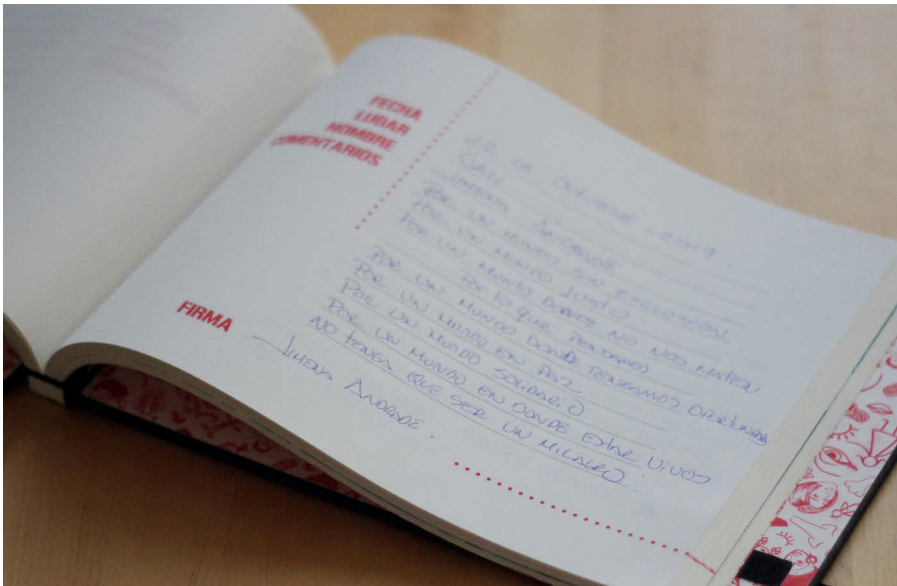 FECHA
LUGAR
NOMBRE
COMENTARIOS
22 DE OCTUBRE - 2019.
CALI
JIMENA ANDRADE
POR UN MUNDO SIN EXCLUSIÓN
POR UN MUNDO JUSTO
POR UN MUNDO DONDE NO NOS MATEN
POR LO QUE PENSAMOS
POR UN MUNDO DONDE TENGAMOS OPORTUNIDAD
POR UN MUNDO EN PAZ
POR UN MUNDO SOLIDARIO
POR UN MUNDO EN DONDE ESTAR VIVOS
NO TENGA QUE SER UN MILAGRO.
FIRMA
JIMENA ANDRADE.